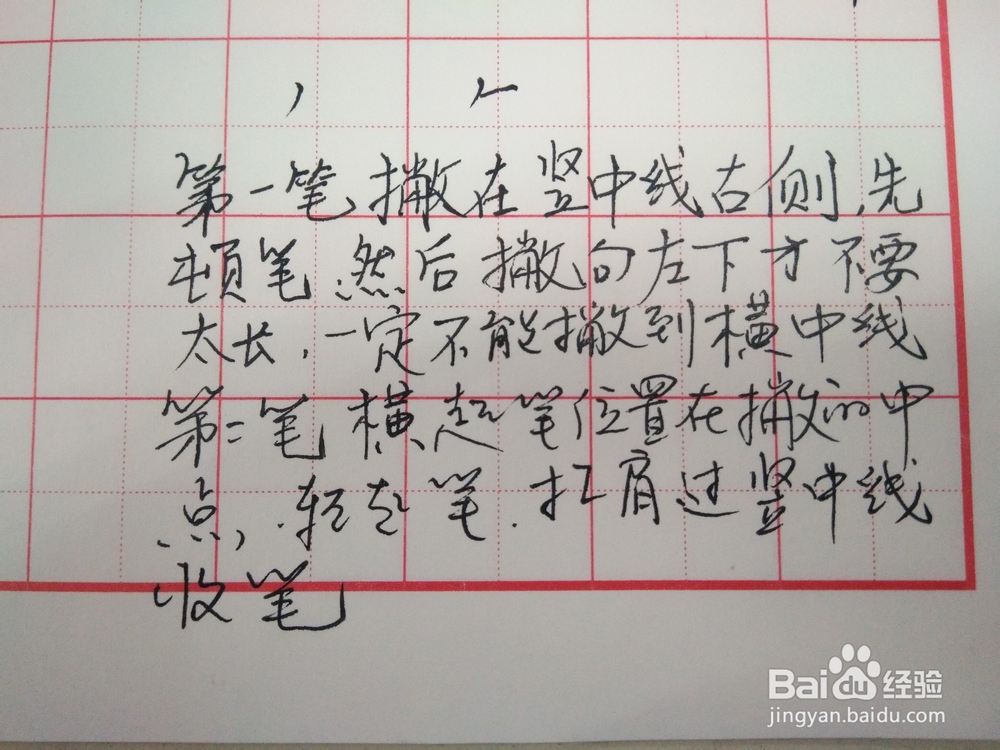 第一笔撇在竖中线右侧,先
顿笔然后撇向左下方不要
太长,一定不能撇到横中线
第二笔横起笔位置在撇的中
点,轻起笔.扛肩过竖中线
收笔
Baidu经验
jingyan.baidu.com